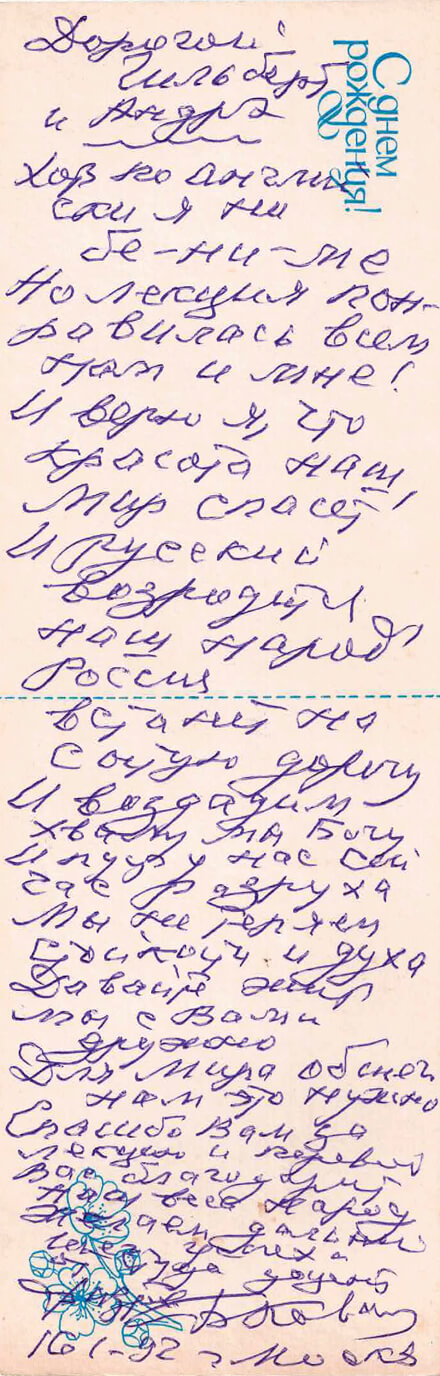 С днем
рождения!
Дорогой
Гильберт
и Андрэ
Хоть по англий
ски я ни
бе-ни-ме
Но лекция пон-
равилась всем
нам и мне!
И верю я, что
красота наш
мир спасет!
И русский
возродит
наш народ
Россия
встанет на
святую дорогу
И воздадим
хвалу мы Богу
И пусть у нас сей
час разруха
Мы не теряем
стойкости и духа
Давайте жить
мы с Вами
дружно
Для Мира
нам это нужно
Спасибо Вам за
лекцию и
Вас благодарит
наш весь народ
Желаем
успеха
доцент
16 1-92 г Москва